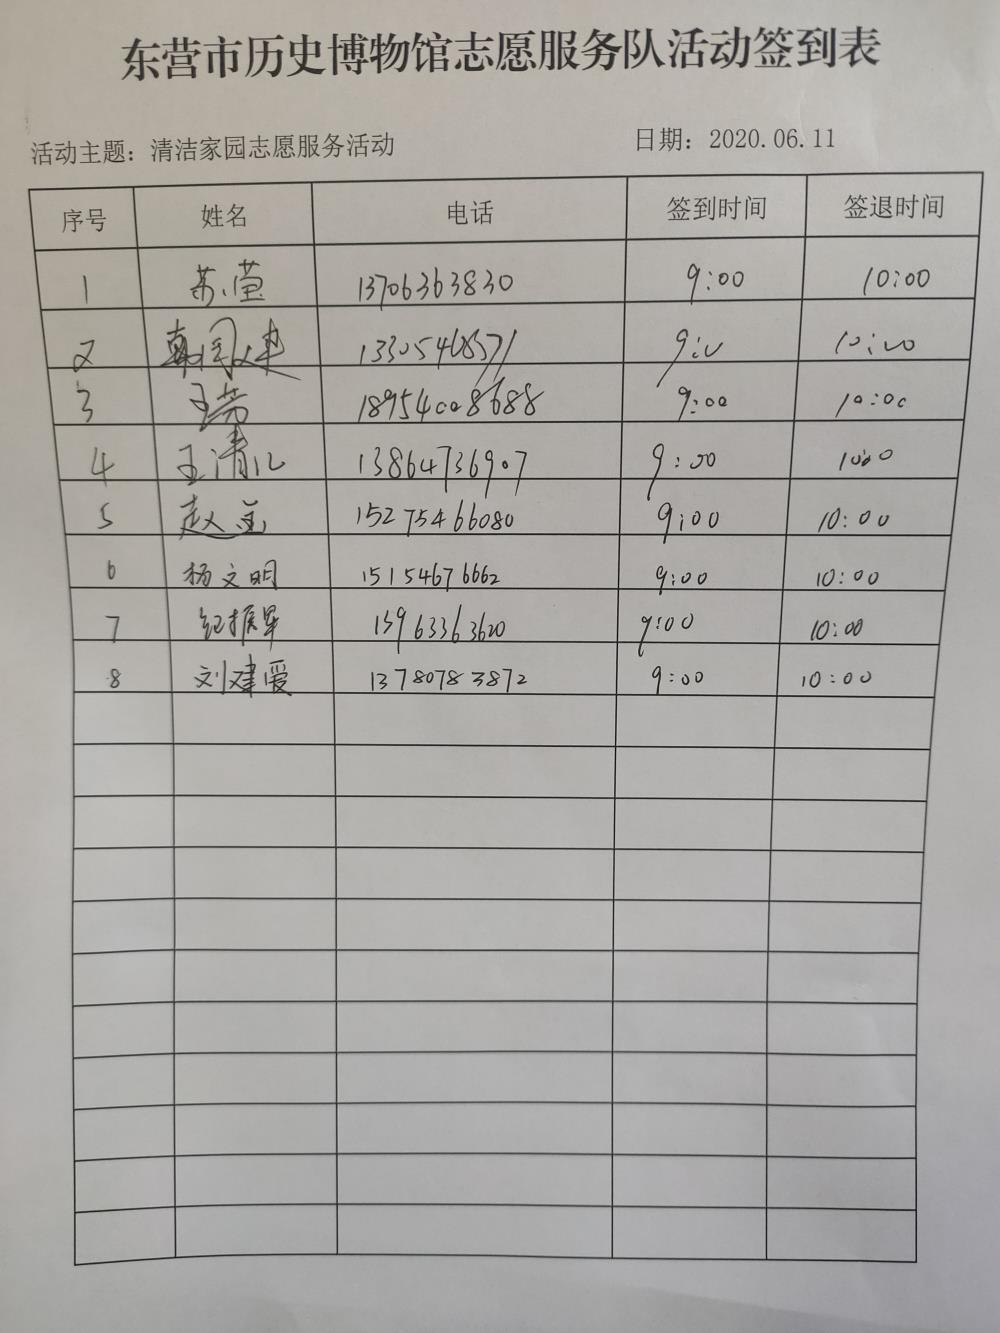 东营市历史博物馆志愿服务队活动签到表
活动主题：清洁家园志愿服务活动 日期：2020.06.11
序号 姓名 电话 签到时间 签退时间
1 苏莹 13706363830 9:00 10:00
2 韩国建 13305468571 9:00 10:00
3 王芳 18954008688 9:00 10:00
4 王清 13864736907 9:00 10:00
5 赵 15275466080 9:00 10:00
6 杨文明 15154676662 9:00 10:00
7 纪振军 15963363620 9:00 10:00
8 刘建爱 13780783872 9:00 10:00